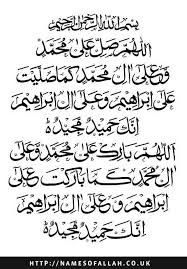 بسم الله الرحمن الرحيم
اللهم صل على محمد
وعلى آل محمد كما صليت
على إبراهيم وعلى آل إبراهيم
إنك حميد مجيد
اللهم بارك على محمد وعلى
آل محمد كما باركت على
إبراهيم وعلى آل إبراهيم
إنك حميد مجيد
HTTP://NAMESOFALLAH.CO.UK